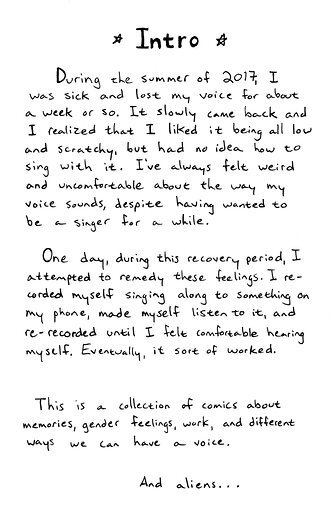 ☆ Intro ☆
During the summer of 2017, I
was sick and lost my voice for about
a week or so. It slowly came back and
I realized that I liked it being all low
and scratchy, but had no idea how to
sing with it. I've always felt weird
and uncomfortable about the way my
voice sounds, despite having wanted to
be a singer for a while.
One day, during this recovery period, I
attempted to remedy these feelings. I re-
corded myself singing along to something on
my phone, made myself listen to it, and
re-recorded until I felt comfortable hearing
myself. Eventually, it sort of worked.
This is a collection of comics about
memories, gender feelings, work, and different
ways we can have a voice.
And aliens...